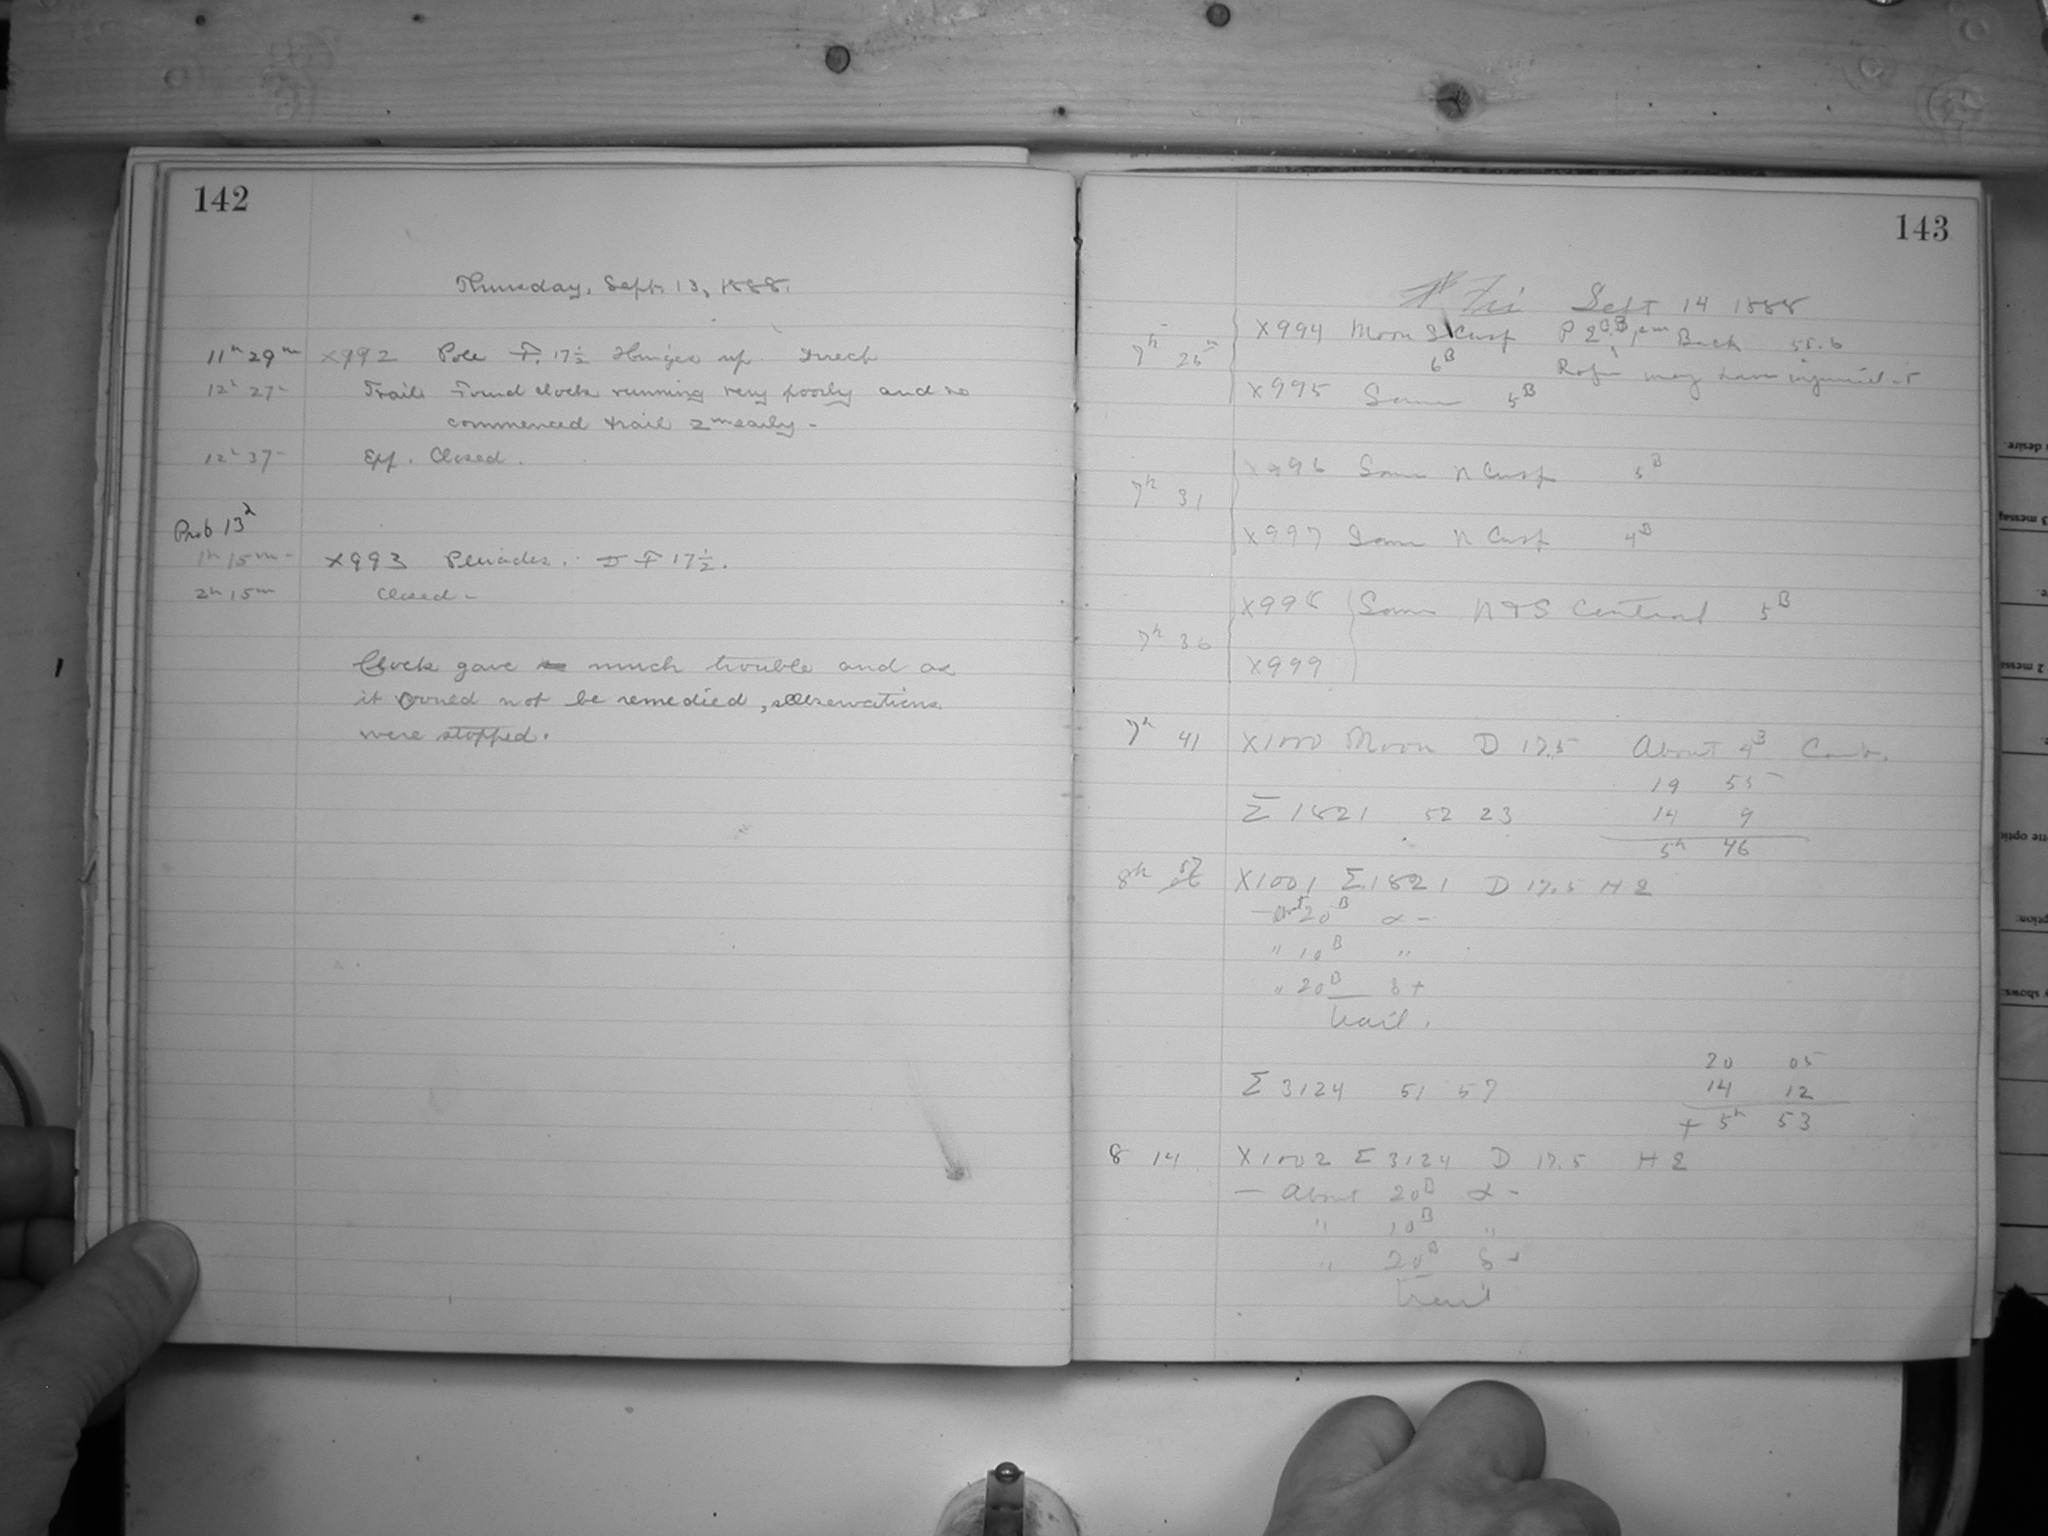 142
Thursday, Sept. 13, 1888.
11h 29m X992 Pole F. 17½ Hinges up. Direct
12h 27m Trail. Found clock running very poorly and so
commenced trail 2m early -
12h 37m Exp. Closed.
Prob 13²
1h 15m X993 Pleiades. D F 17½.
2h 15m Closed -
Clock gave much trouble and as
it could not be remedied, observations
were stopped.
143
Fri Sept 14 1888
X994 Moon S Cusp Back 55.6
7h 25m 6B may have injured it
X995 Same 5B
X996 Same N Cusp 5B
7h 31
X997 Same N Cusp 4B
X998 Same N & S Central 5B
7h 36
X999
7h 41 X1000 Moon D 17.5 About 4B Cent.
19 55
Σ 1821 52 23 14 9
5h 46
8h 57 X1001 Σ1821 D 17.5 H 2
— about 20B α -
" 10B "
" 20B δ +
trail.
20 05
Σ 3124 51 57 14 12
+ 5h 53
8 14 X1002 Σ 3124 D 17.5 H 2
— About 20B α -
" 10B "
" 20B δ +
trail